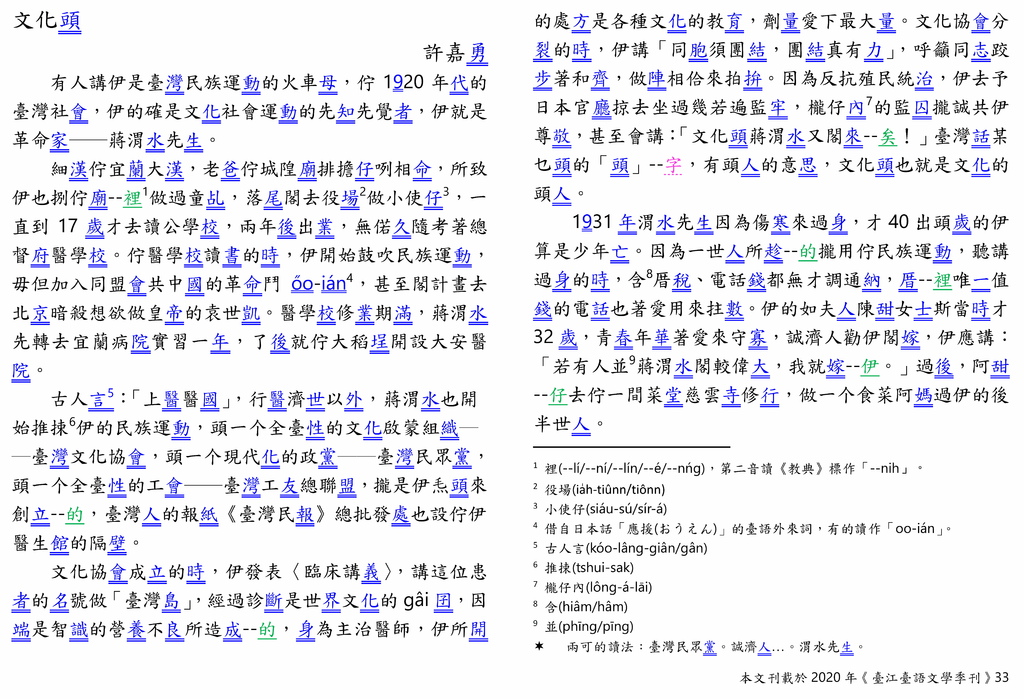 文化頭
許嘉勇
有人講伊是臺灣民族運動的火車母，佇 1920 年代的
臺灣社會，伊的確是文化社會運動的先知先覺者，伊就是
革命家——蔣渭水先生。
細漢佇宜蘭大漢，老爸佇城隍廟排擔仔咧相命，所致
伊也捌佇廟--裡1做過童乩，落尾閣去役場2做小使仔3，一
直到 17 歲才去讀公學校，兩年後出業，無偌久隨考著總
督府醫學校。佇醫學校讀書的時，伊開始鼓吹民族運動，
毋但加入同盟會共中國的革命鬥 óo-ián4，甚至閣計畫去
北京暗殺想欲做皇帝的袁世凱。醫學校修業期滿，蔣渭水
先轉去宜蘭病院實習一年，了後就佇大稻埕開設大安醫
院。
古人言5：「上醫醫國」，行醫濟世以外，蔣渭水也開
始推捒6伊的民族運動，頭一个全臺性的文化啟蒙組織—
—臺灣文化協會，頭一个現代化的政黨——臺灣民眾黨，
頭一个全臺性的工會——臺灣工友總聯盟，攏是伊𤆬頭來
創立--的，臺灣人的報紙《臺灣民報》總批發處也設佇伊
醫生館的隔壁。
文化協會成立的時，伊發表〈臨床講義〉，講這位患
者的名號做「臺灣島」，經過診斷是世界文化的 gâi 囝，因
端是智識的營養不良所造成--的，身為主治醫師，伊所開
的處方是各種文化的教育，劑量愛下最大量。文化協會分
裂的時，伊講「同胞須團結，團結真有力」，呼籲同志跤
步著和齊，做陣相佮來拍拚。因為反抗殖民統治，伊去予
日本官廳掠去坐過幾若遍監牢，櫳仔內7的監囚攏誠共伊
尊敬，甚至會講：「文化頭蔣渭水又閣來--矣！」臺灣話某
乜頭的「頭」--字，有頭人的意思，文化頭也就是文化的
頭人。
1931 年渭水先生因為傷寒來過身，才 40 出頭歲的伊
算是少年亡。因為一世人所趁--的攏用佇民族運動，聽講
過身的時，含8厝稅、電話錢都無才調通納，厝--裡唯一值
錢的電話也著愛用來拄數。伊的如夫人陳甜女士斯當時才
32 歲，青春年華著愛來守寡，誠濟人勸伊閣嫁，伊應講：
「若有人並9蔣渭水閣較偉大，我就嫁--伊。」過後，阿甜
--仔去佇一間菜堂慈雲寺修行，做一个食菜阿媽過伊的後
半世人。
1 裡(--lí/--ní/--lín/--é/--nńg)，第二音讀《教典》標作「--nih」。
2 役場(ia̍h-tiûnn/tiônn)
3 小使仔(siáu-sú/sír-á)
4 借自日本話「應援(おうえん)」的臺語外來詞，有的讀作「oo-ián」。
5 古人言(kóo-lâng-giân/gân)
6 推捒(tshui-sak)
7 櫳仔內(lông-á-lāi)
8 含(hiâm/hâm)
9 並(phīng/pīng)
★ 兩可的讀法：臺灣民眾黨。誠濟人…。渭水先生。
本文刊載於 2020 年《臺江臺語文學季刊》33